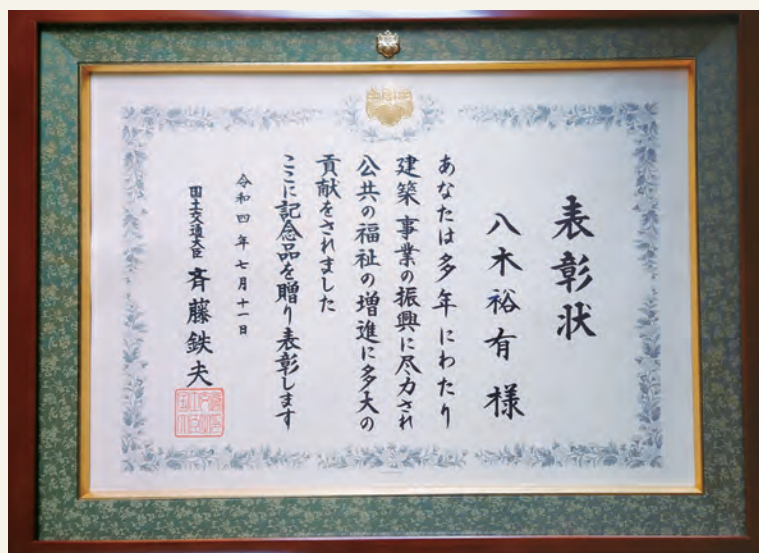 表彰状
八木裕有様
あなたは多年にわたり
建築事業の振興に尽力され
公共の福祉の増進に多大の
貢献をされました
ここに記念品を贈り表彰します
令和四年七月十一日
国土交通大臣 斉藤鉄夫